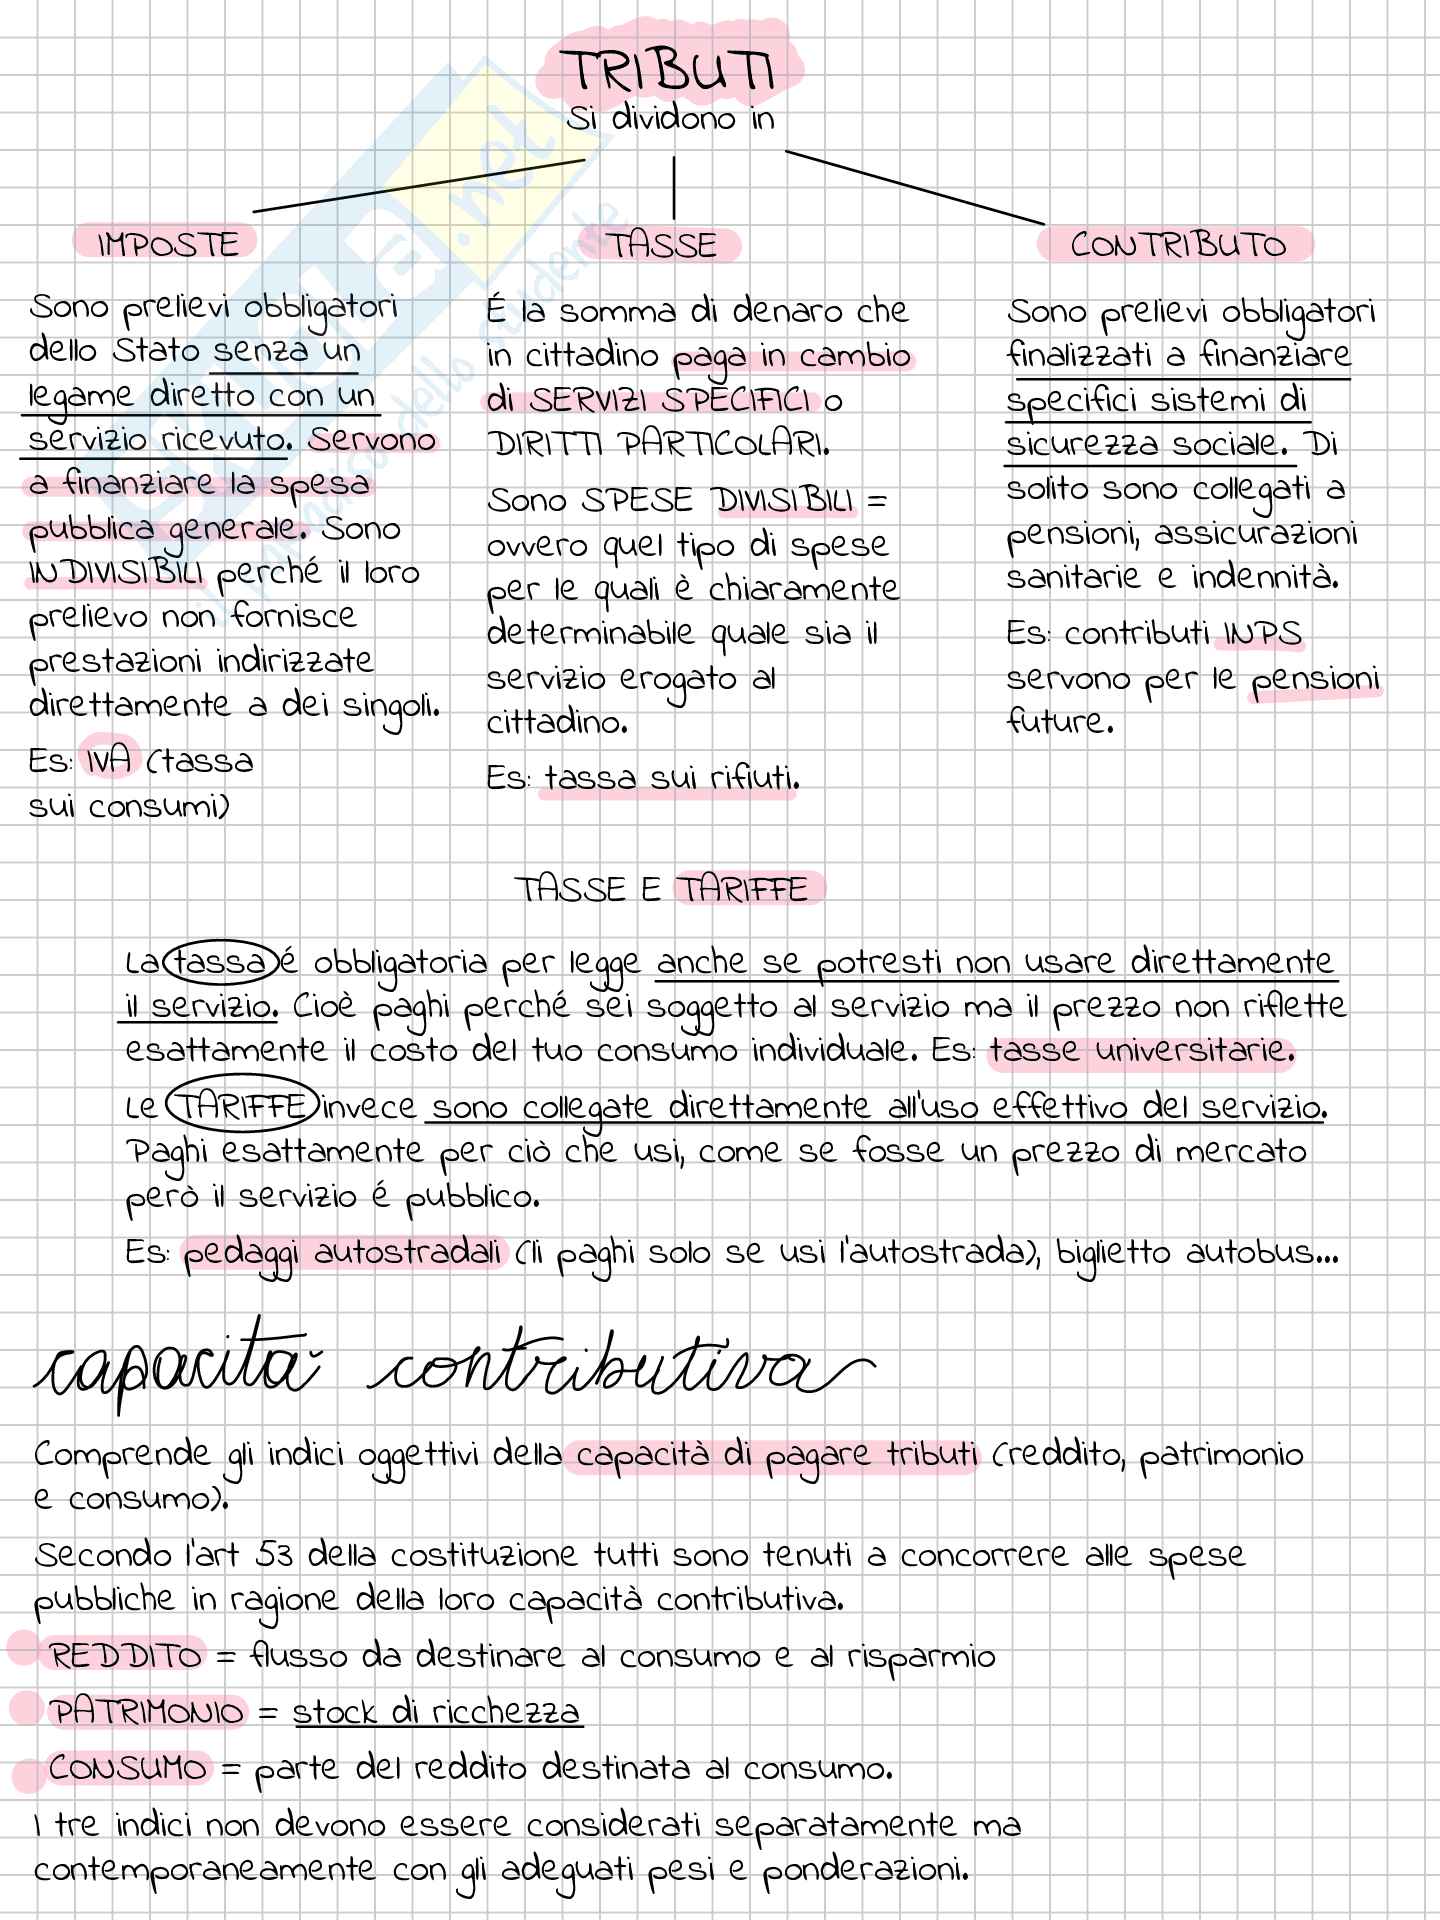 TRIBUTI
Si dividono in
IMPOSTE
Sono prelievi obbligatori
dello Stato senza un
legame diretto con un
servizio ricevuto. Servono
a finanziare la spesa
pubblica generale. Sono
INDIVISIBILI perché il loro
prelievo non fornisce
prestazioni indirizzate
direttamente a dei singoli.
Es: IVA (tassa
sui consumi)
TASSE
É la somma di denaro che
in cittadino paga in cambio
di SERVIZI SPECIFICI o
DIRITTI PARTICOLARI.
Sono SPESE DIVISIBILI =
ovvero quel tipo di spese
per le quali è chiaramente
determinabile quale sia il
servizio erogato al
cittadino.
Es: tassa sui rifiuti.
CONTRIBUTO
Sono prelievi obbligatori
finalizzati a finanziare
specifici sistemi di
sicurezza sociale. Di
solito sono collegati a
pensioni, assicurazioni
sanitarie e indennità.
Es: contributi INPS
servono per le pensioni
future.
TASSE E TARIFFE
La tassa é obbligatoria per legge anche se potresti non usare direttamente
il servizio. Cioè paghi perché sei soggetto al servizio ma il prezzo non riflette
esattamente il costo del tuo consumo individuale. Es: tasse universitarie.
Le TARIFFE invece sono collegate direttamente all'uso effettivo del servizio.
Paghi esattamente per ciò che usi, come se fosse un prezzo di mercato
però il servizio é pubblico.
Es: pedaggi autostradali (li paghi solo se usi l'autostrada), biglietto autobus...
capacità contributiva
Comprende gli indici oggettivi della capacità di pagare tributi (reddito, patrimonio
e consumo).
Secondo l'art 53 della costituzione tutti sono tenuti a concorrere alle spese
pubbliche in ragione della loro capacità contributiva.
REDDITO = flusso da destinare al consumo e al risparmio
PATRIMONIO = stock di ricchezza
CONSUMO = parte del reddito destinata al consumo.
I tre indici non devono essere considerati separatamente ma
contemporaneamente con gli adeguati pesi e ponderazioni.
Skuola.net
il paradiso dello studente